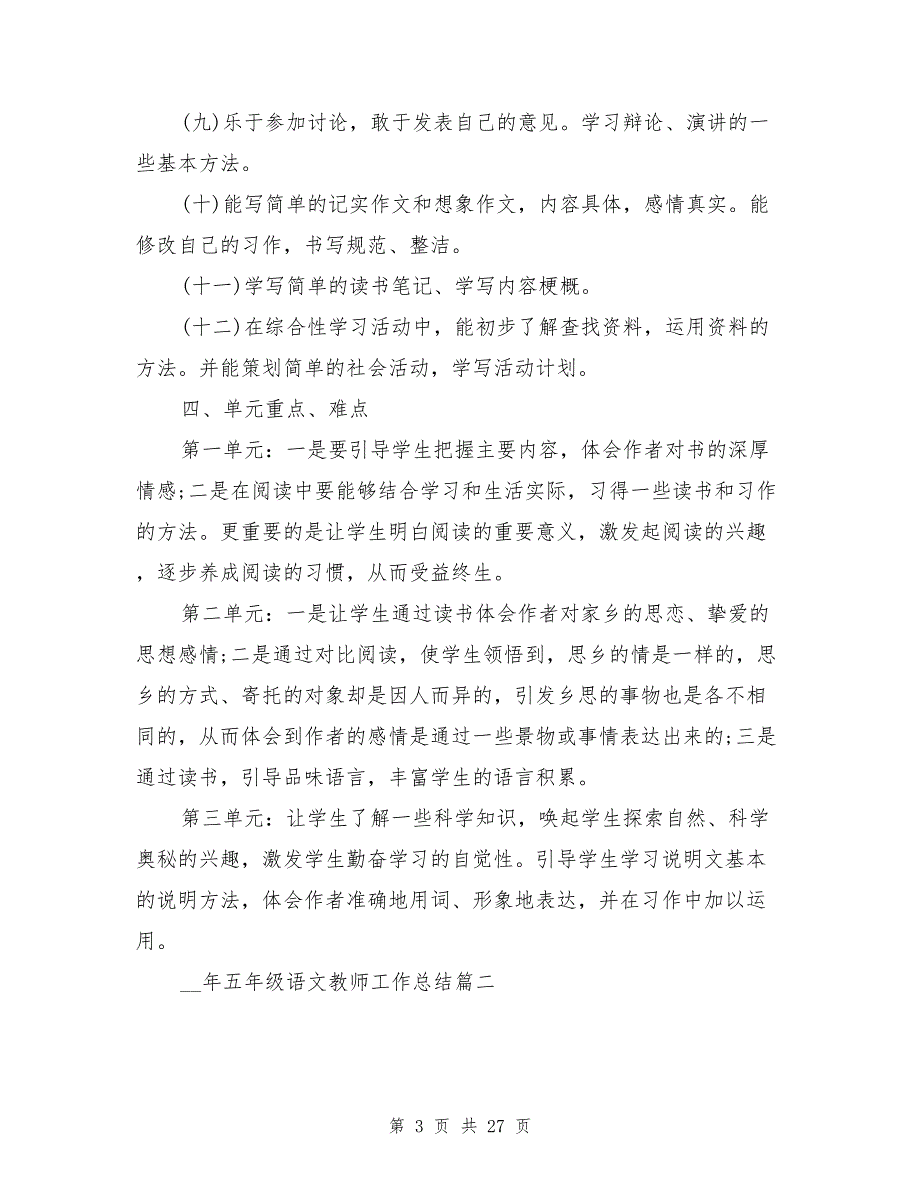 (九)乐于参加讨论，敢于发表自己的意见。学习辩论、演讲的一
些基本方法。
(十)能写简单的记实作文和想象作文，内容具体，感情真实。能
修改自己的习作，书写规范、整洁。
(十一)学写简单的读书笔记、学写内容梗概。
(十二)在综合性学习活动中，能初步了解查找资料，运用资料的
方法。并能策划简单的社会活动，学写活动计划。
四、单元重点、难点
第一单元：一是要引导学生把握主要内容，体会作者对书的深厚
情感;二是在阅读中要能够结合学习和生活实际，习得一些读书和习作
的方法。更重要的是让学生明白阅读的重要意义，激发起阅读的兴趣
，逐步养成阅读的习惯，从而受益终生。
第二单元：一是让学生通过读书体会作者对家乡的思恋、挚爱的
思想感情;二是通过对比阅读，使学生领悟到，思乡的情是一样的，思
乡的方式、寄托的对象却是因人而异的，引发乡思的事物也是各不相
同的，从而体会到作者的感情是通过一些景物或事情表达出来的;三是
通过读书，引导品味语言，丰富学生的语言积累。
第三单元：让学生了解一些科学知识，唤起学生探索自然、科学
奥秘的兴趣，激发学生勤奋学习的自觉性。引导学生学习说明文基本
的说明方法，体会作者准确地用词、形象地表达，并在习作中加以运
用。
__年五年级语文教师工作总结篇二
第 3 页 共 27 页